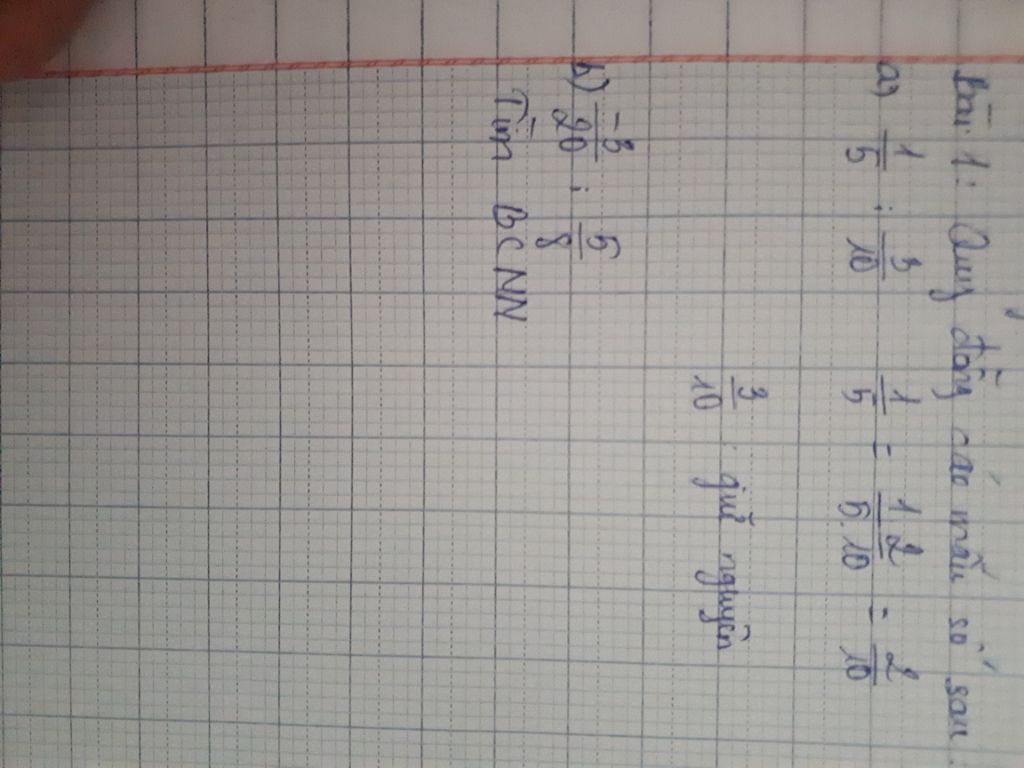 Bài 1: Quy đồng các mẫu số sau.
a) 1/5 ; 3/10   1/5 = 1.2/5.10 = 2/10
3/10 giữ nguyên
b) -3/20 ; 5/8
Tìm BCNN